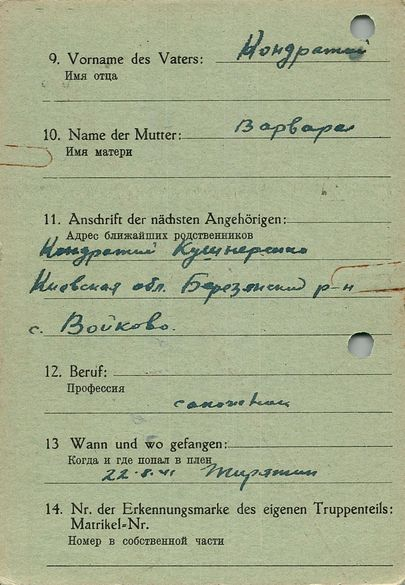 9. Vorname des Vaters: Кондратий
Имя отца
10. Name der Mutter: Варвара
Имя матери
11. Anschrift der nächsten Angehörigen:
Адрес ближайших родственников
Кондратий Кушнеренко
Киевская обл. Березянский р-н
с. Войково.
12. Beruf:
Профессия
13 Wann und wo gefangen:
Когда и где попал в плен
22-8-41
14. Nr. der Erkennungsmarke des eigenen Truppenteils:
Matrikel-Nr.
Номер в собственной части